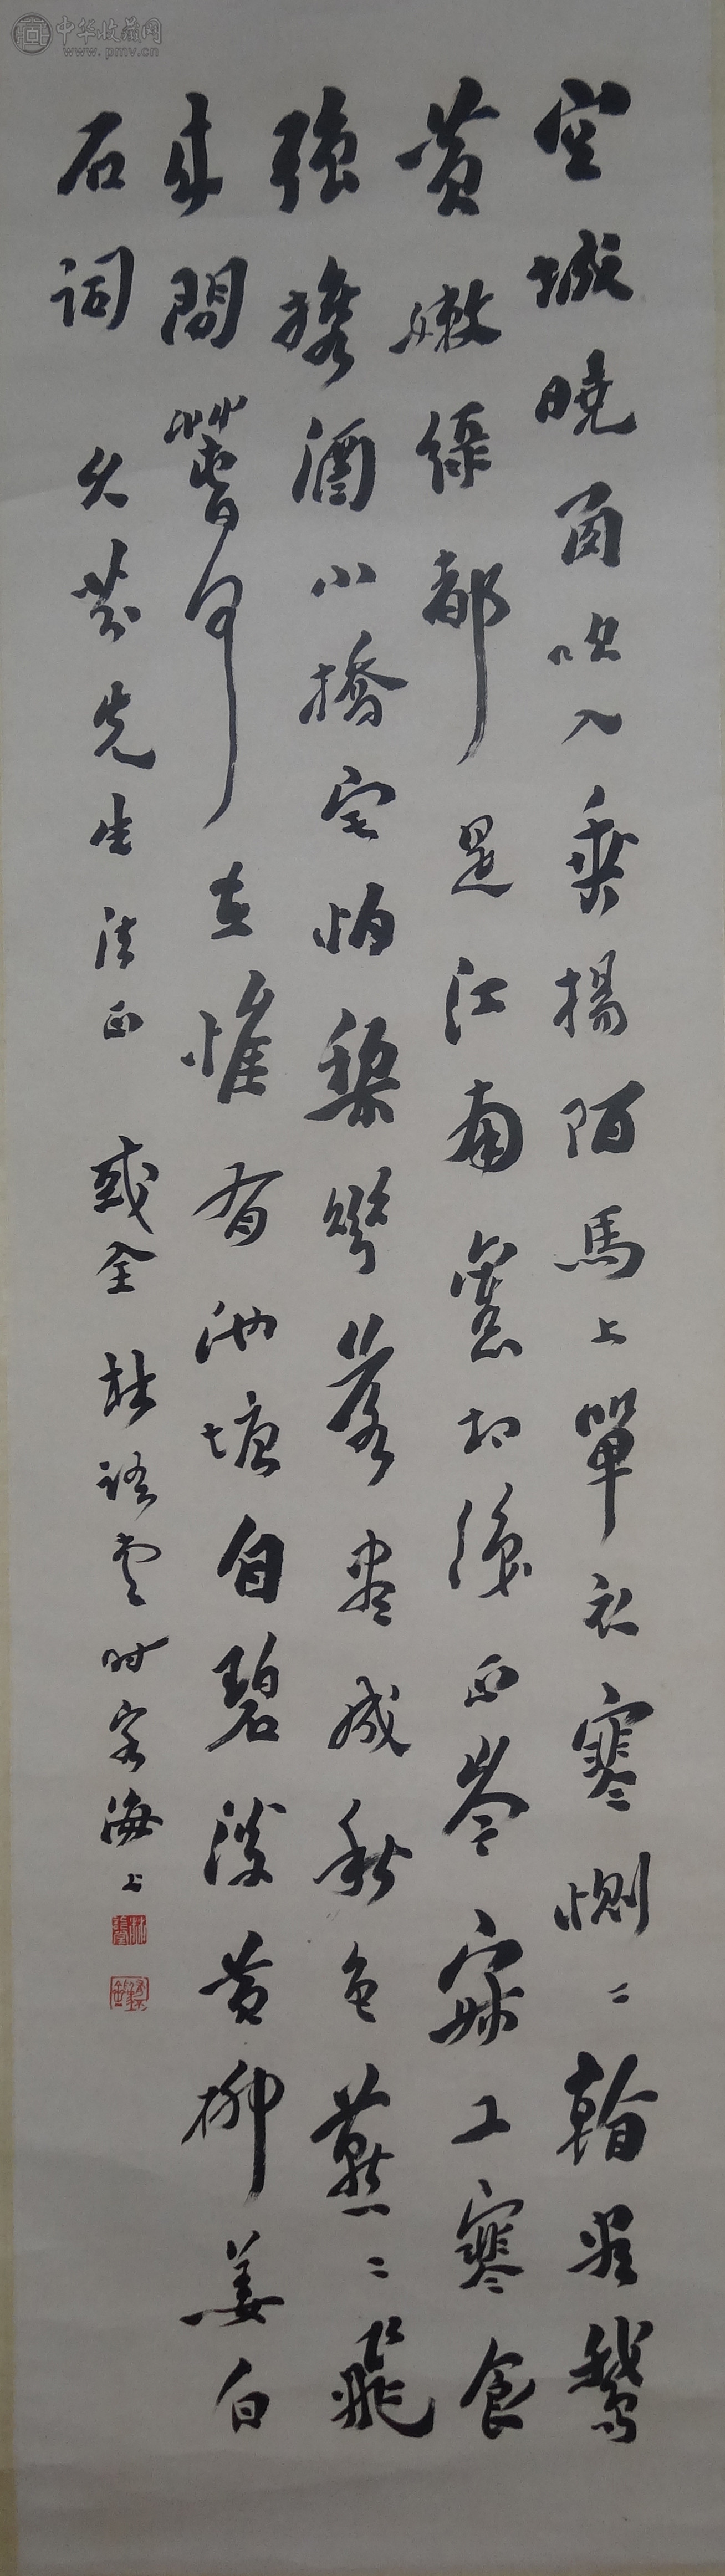 空城曉角吹入垂揚陌馬上單衣寒惻二看盡鵝
黃嫩綠都是江南舊相識正岑寂明朝又寒食
強攜酒小橋宅怕梨花落盡成秋色燕二飛
來問春何在惟有池塘自碧淡黃柳姜白
石詞 久芬先生法正 時客海上
中华收藏网
www.pmv.cn